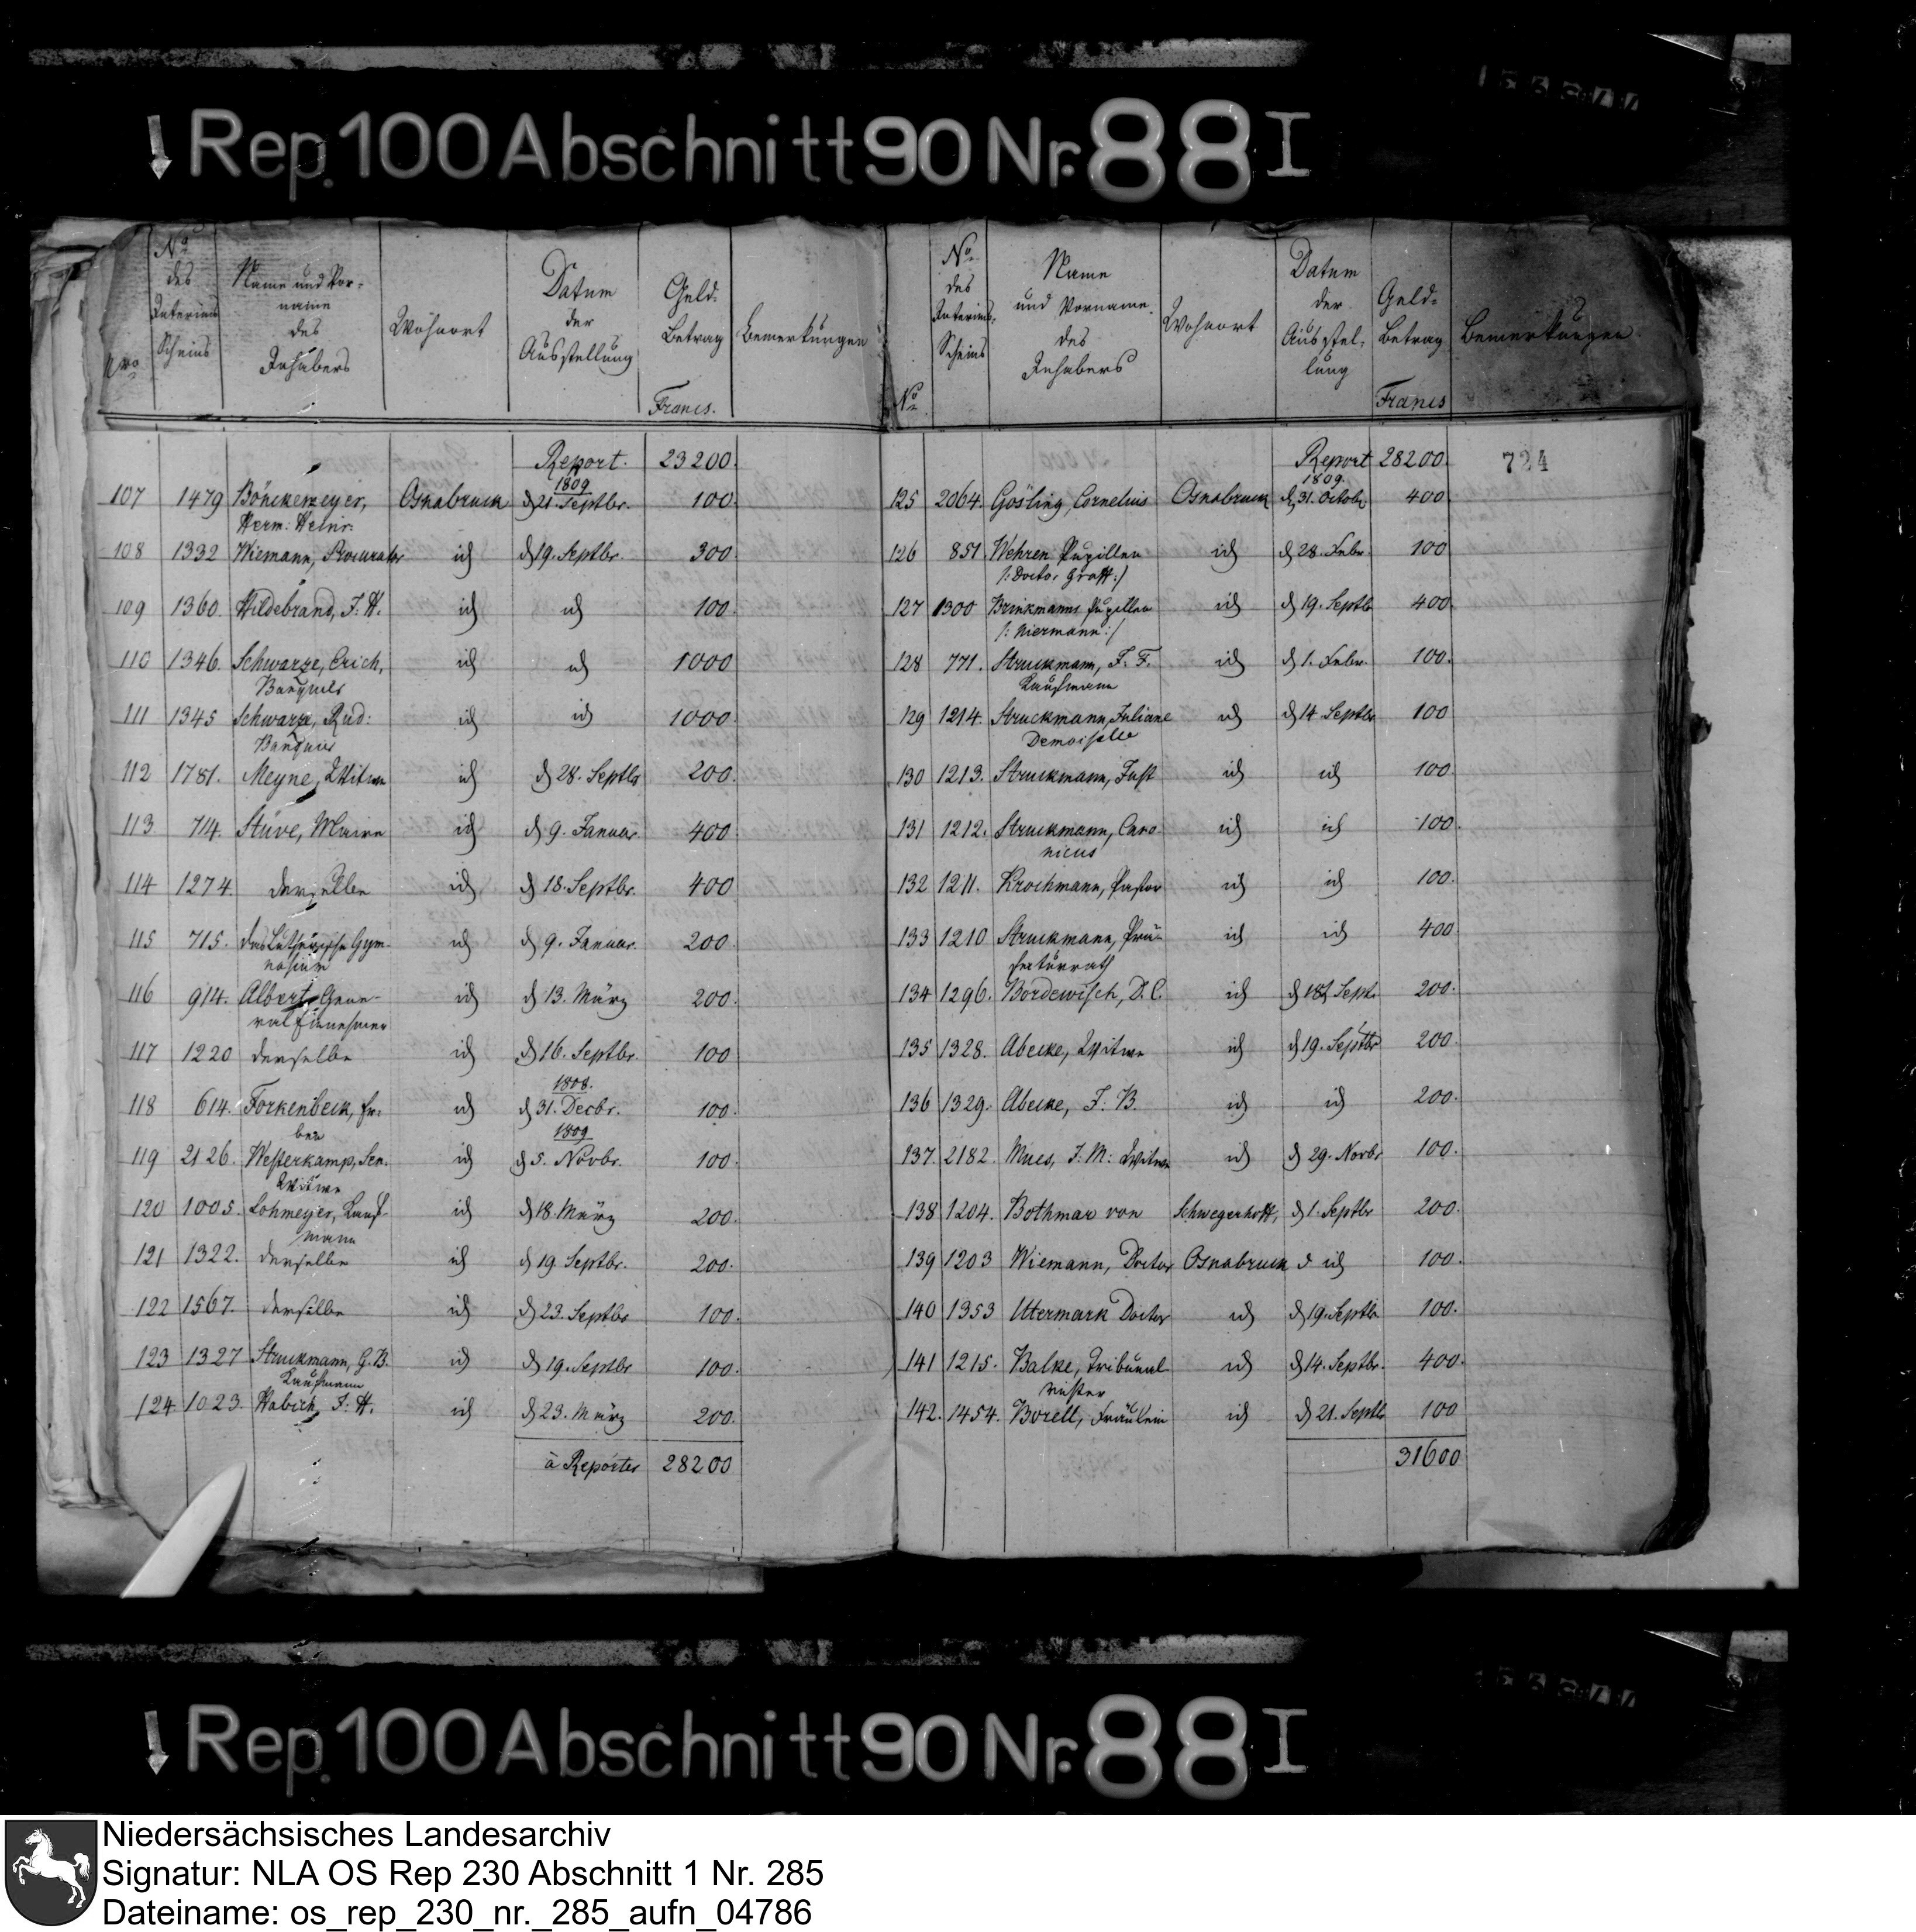 Rep. 100 Abschnitt 90 Nr. 88 I
No des Interims Scheins
Name und Vorname des Inhabers
Wohnort
Datum der Ausstellung
Geld-Betrag
Francs.
Bemerkungen
Report. 23200.
107 1479 Bönckerzeyer, Osnabruck d 21. Septbr. 100.
1809
Herm: Heinr:
108 1332 Wiemann, Procurator id d 19. Septbr. 300.
109 1360. Hildebrand, J. H. id id 100.
110 1346. Schwarze, Erich, id id 1000
Banquier
111 1345 Schwarze, Rud: id id 1000.
Banquier
112 1781. Meyne, Witwe id d 28. Septbr 200.
113 714. Stüve, Maire id d 9. Januar. 400
114 1274. derselbe id d 18. Septbr. 400
115 715. das Luthrische Gym- id d 9. Januar. 200.
nasium
116 914. Albert, Gene- id d 13. März 200.
ral Einnehmer
117 1220 derselbe id d 16. Septbr. 100
1808.
118 614. Forkenbeck, Er- id d 31. Decbr. 100.
ben
1809
119 2126. Westerkamp, Sen. id d 5. Novbr. 100.
Witwe
120 1005. Lohmeyer, Kauf- id d 18. März 200.
mann
121 1322. derselbe id d 19 Septbr. 200.
122 1567. derselbe id d 23. Septbr 100.
123 1327 Struckmann, G. B. id d 19. Septbr 100.
Kaufmann
124 1023. Habich, J. H. id d 23. März 200.
à Reporter 28200
No
No des Interims-Scheins
Name und Vorname des Inhabers
Wohnort
Datum der Ausstellung
Geld-Betrag
Francs
Bemerkungen
Report 28200. 724
1809.
125 2064. Gösling, Cornelius Osnabruck d 31. Octobr 400
126 851. Wehren Pupillen id d 28. Febr. 100
/: Doctor Graff :/
127 1300 Brinkmanns Pupillen id d 19. Septbr 400.
/: Niermann :/
128 771. Struckmann, F. F. id d 1. Febr. 100.
Kaufmann
129 1214. Struckmann, Juliane id d 14 Septbr 100
Demoiselle
130 1213. Struckmann, Just id id 100
131 1212. Struckmann, Cano id id 100.
nicus
132 1211. Krochmann, Pastor id id 100.
133 1210 Struckmann, Prä- id id 400
fecturrath
134 1296. Bordewisch, D. C. id d 18 Sept. 200.
135 1328. Abecke, Witwe id d 19. Septbr 200.
136 1329. Abecke, F. B. id id 200.
137. 2182. Mues, J. M: Witwe id d 29. Novbr 100.
138 1204. Bothmar von Schwegerhoff, d 1. Septbr 200.
139 1203 Wiemann, Doctor Osnabruck d id 100.
140 1353 Utermark Doctor id d 19. Septbr 100.
141 1215. Balke, Tribunal id d 14. Septbr. 400.
richter
142. 1454. Borell, Fräulein id d 21. Septbr 100
31600
Rep. 100 Abschnitt 90 Nr. 88 I
Niedersächsisches Landesarchiv
Signatur: NLA OS Rep 230 Abschnitt 1 Nr. 285
Dateiname: os_rep_230_nr._285_aufn_04786